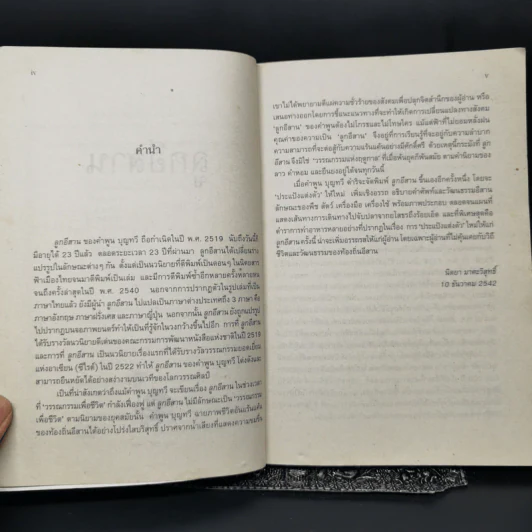 คำนำ
ลูกอีสาน ของ คำพูน บุญทวี ถือกำเนิดในปี พ.ศ. 2519 นับถึงวันนี้
มีอายุได้ 23 ปีแล้ว ตลอดระยะเวลา 23 ปีที่ผ่านมา ลูกอีสานได้เปลี่ยน
แปรรูปในลักษณะต่างๆ กัน ตั้งแต่เป็นนวนิยายที่ตีพิมพ์เป็นตอนๆ ในนิตยสาร
ฟ้าเมืองไทยจนมาตีพิมพ์เป็นเล่ม และมีการตีพิมพ์ซ้ำอีกหลายครั้งหลายหน
จนถึงครั้งล่าสุดในปี พ.ศ. 2540 นอกจากการปรากฏตัวในรูปเล่มที่เป็น
ภาษาไทยแล้ว ยังมีผู้นำ ลูกอีสาน ไปแปลเป็นภาษาต่างประเทศถึง 3 ภาษา คือ
ภาษาอังกฤษ ภาษาฝรั่งเศส และภาษาญี่ปุ่น นอกจากนั้น ลูกอีสาน ยังถูกแปรรูป
ไปปรากฏบนจอภาพยนตร์ทำให้เป็นที่รู้จักในวงกว้างขึ้นไปอีก การที่ ลูกอีสาน
ได้รับรางวัลนวนิยายดีเด่นของคณะกรรมการพัฒนาหนังสือแห่งชาติในปี 2519
และการที่ ลูกอีสาน เป็นนวนิยายเรื่องแรกที่ได้รับรางวัลวรรณกรรมยอดเยี่ยม
แห่งอาเซียน (ซีไรต์) ในปี 2522 ทำให้ ลูกอีสาน ของ คำพูน บุญทวี โด่งดังและ
สามารถยืนหยัดได้อย่างสง่างามบนเวทีของโลกวรรณศิลป์
เป็นที่น่าสังเกตว่าถึงแม้คำพูน บุญทวี จะเขียนเรื่อง ลูกอีสาน ในช่วงเวลา
ที่ "วรรณกรรมเพื่อชีวิต" กำลังเฟื่องฟู แต่ ลูกอีสาน ไม่มีลักษณะเป็น "วรรณกรรม
เพื่อชีวิต" ตามนิยามของยุคสมัยนั้น คำพูน บุญทวี ฉายภาพชีวิตอันแร้นแค้น
ของท้องถิ่นอีสานได้อย่างโปร่งใสบริสุทธิ์ ปราศจากน้ำเสียงที่แสดงความขมขื่น
เขาไม่ได้พยายามตีแผ่ความชั่วร้ายของสังคมเพื่อปลุกจิตสำนึกของผู้อ่าน หรือ
เสนอทางออกโดยการชี้แนะแนวทางที่จะทำให้เกิดการเปลี่ยนแปลงทางสังคม
'ลูกอีสาน' ของคำพูนต้องไม่โกรธและไม่โทษใคร แม้แต่ฟ้าที่ไม่ยอมหลั่งฝน
คุณค่าของความเป็น 'ลูกอีสาน' จึงอยู่ที่การเรียนรู้ที่จะอยู่กับความลำบาก
ความสามารถที่จะต่อสู้กับความแร้นแค้นอย่างมีศักดิ์ศรี ด้วยเหตุนี้กระมังที่ ลูก
อีสาน จึงมิใช่ "วรรณกรรมแห่งฤดูกาล" ที่เมื่อพ้นยุคก็พ้นสมัย ตามคำนิยามของ
ลาว คำหอม และยืนยงอยู่ได้จนทุกวันนี้
เมื่อคำพูน บุญทวี ดำริจะจัดพิมพ์ ลูกอีสาน ขึ้นเองอีกครั้งหนึ่ง โดยจะ
'ประแป้งแต่งตัว' ให้ใหม่ เพิ่มเชิงอรรถ อธิบายคำศัพท์และวัฒนธรรมอีสาน
ลักษณะของพืช สัตว์ เครื่องมือ เครื่องใช้ พร้อมภาพประกอบ ตลอดจนแผนที่
แสดงเส้นทางการเดินทางไปจับปลาจากยโสธรถึงร้อยเอ็ด และที่พิเศษสุดคือ
ตำราการทำอาหารหลายอย่างที่ปรากฏในเรื่อง การ 'ประแป้งแต่งตัว' ใหม่ให้แก่
ลูกอีสานครั้งนี้ น่าจะเพิ่มอรรถรสให้แก่ผู้อ่าน โดยเฉพาะผู้อ่านที่ไม่คุ้นเคยกับวิถี
ชีวิตและวัฒนธรรมของท้องถิ่นอีสาน
นิตยา มาศะวิสุทธิ์
10 ธันวาคม 2542